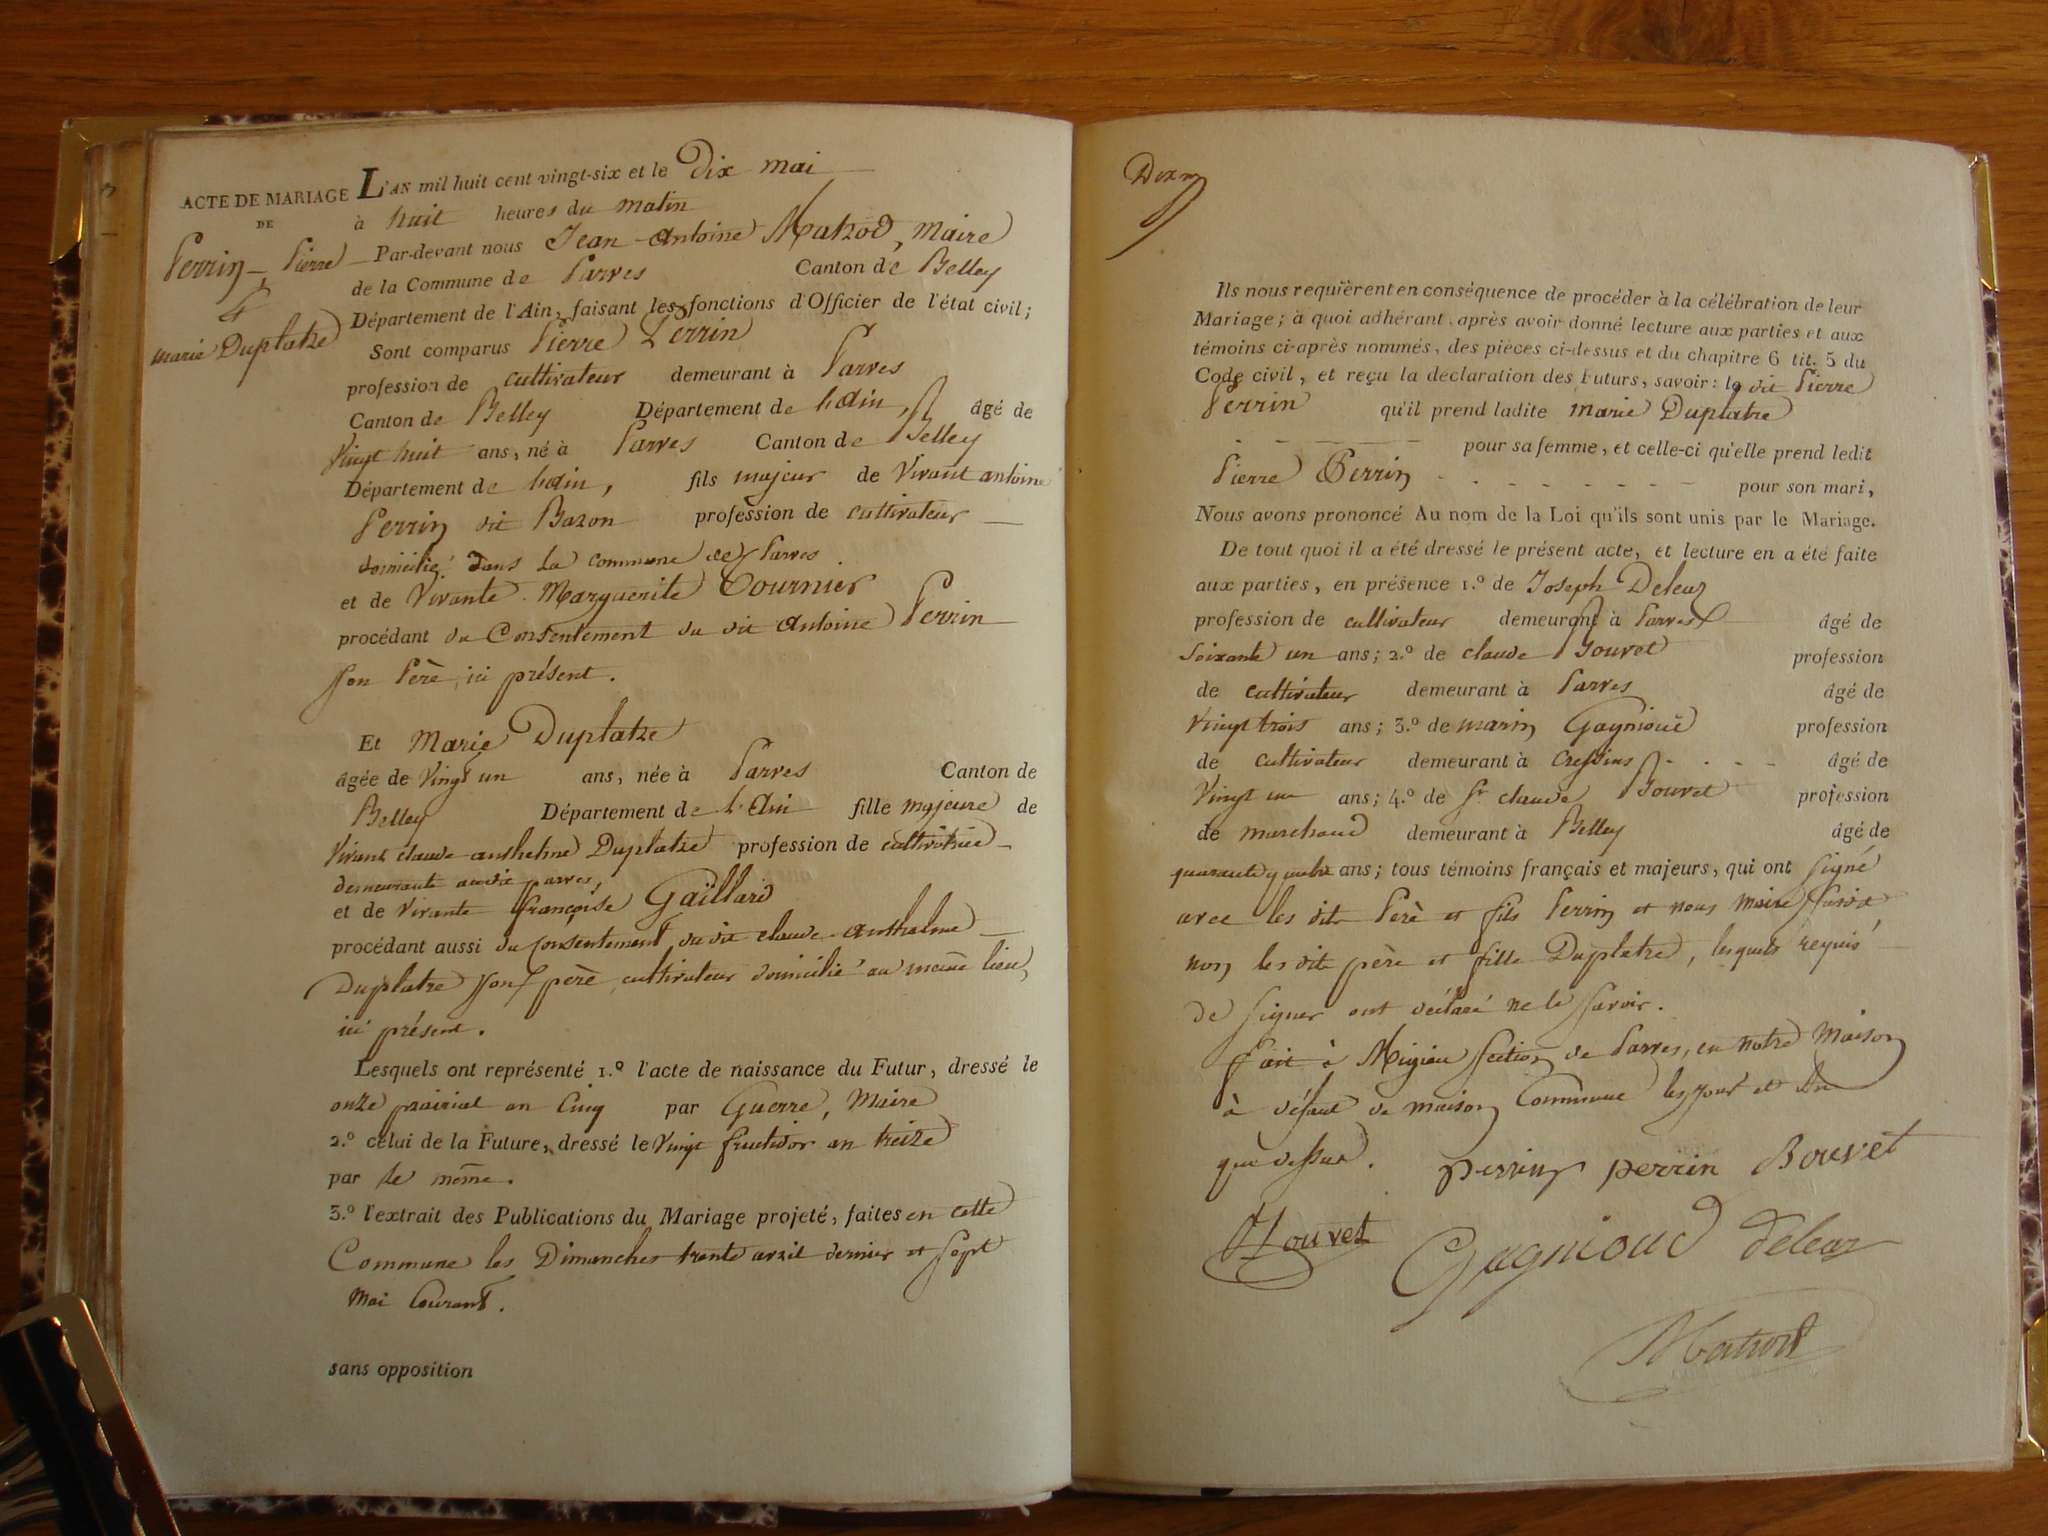 ACTE DE MARIAGE
DE
Perrin, Pierre
&
marie Duplatre
L'AN mil huit cent vingt-six et le Dix mai
à huit heures du matin
Par-devant nous Jean-Antoine Matrod, Maire
de la Commune de Parves Canton de Belley
Département de l'Ain, faisant les fonctions d'Officier de l'état civil;
Sont comparus Pierre Perrin
profession de cultivateur demeurant à Parves
Canton de Belley Département de L'Ain, âgé de
Vingt huit ans, né à Parves Canton de Belley
Département de L'Ain, fils majeur de Vivant antoine
Perrin dit Bazon profession de cultivateur
domicilié dans la commune de Parves
et de Vivante Marguerite Tournier
procédant du Consentement du dit Antoine Perrin
son Père, ici présent.
Et Marie Duplatre
âgée de Vingt un ans, née à Parves Canton de
Belley Département de L'Ain fille majeure de
Vivant claude-anthelme Duplatre profession de cultivatrice
demeurante audit parves,
et de Vivante françoise Gaillard
procédant aussi du Consentement du dit claude-anthelme
Duplatre son père, cultivateur domicilié au même lieu,
ici présent.
Lesquels ont représenté 1.º l'acte de naissance du Futur, dressé le
onze prairial an Cinq par Guerre, Maire
2.º celui de la Future, dressé le Vingt fructidor an treize
par le même.
3.º l'extrait des Publications du Mariage projeté, faites en cette
Commune les Dimanches trente avril dernier et Sept
Mai Courant.
sans opposition
Ils nous requièrent en conséquence de procéder à la célébration de leur
Mariage; à quoi adhérant, après avoir donné lecture aux parties et aux
témoins ci-après nommés, des pièces ci-dessus et du chapitre 6 tit. 5 du
Code civil, et reçu la déclaration des Futurs, savoir: le dit Pierre
Perrin qu'il prend ladite marie Duplatre
pour sa femme, et celle-ci qu'elle prend ledit
Pierre Perrin pour son mari,
Nous avons prononcé Au nom de la Loi qu'ils sont unis par le Mariage.
De tout quoi il a été dressé le présent acte, et lecture en a été faite
aux parties, en présence 1.º de Joseph Deleaz
profession de cultivateur demeurant à Parves âgé de
Soixante un ans; 2.º de claude Bouvet profession
de cultivateur demeurant à Parves âgé de
Vingt trois ans; 3.º de marin Gagnioud profession
de cultivateur demeurant à Cressins âgé de
Vingt un ans; 4.º de Sr claude Bouvet profession
de marchand demeurant à Belley âgé de
quarante quatre ans; tous témoins français et majeurs, qui ont signé
avec les dits Père et fils Perrin et nous maire susdit
non les dits père et fille Duplatre, lesquels requis
de signer ont déclaré ne le savoir.
fait à Migieu section de Parves, en notre Maison
à défaut de maison Commune les jour et An
que dessus. perrin perrin Bouvet
Bouvet Gagnioud deleaz
Matrod